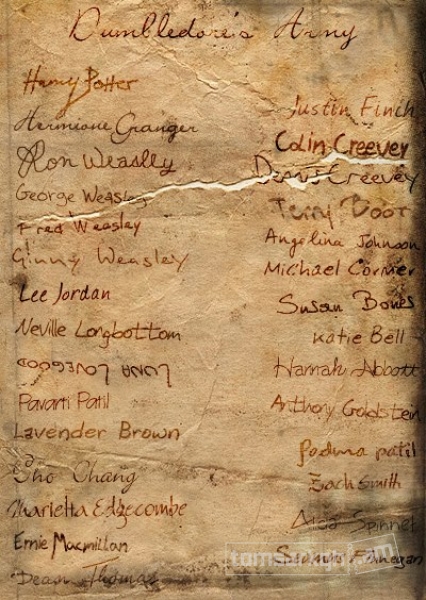 Dumbledore's Army
Harry Potter
Hermione Granger
Ron Weasley
George Weasley
Fred Weasley
Ginny Weasley
Lee Jordan
Neville Longbottom
LUNA LOVEGOOD
Pavarti Patil
Lavender Brown
Cho Chang
Marietta Edgecombe
Ernie Macmillan
Dean Thomas
Justin Finch
Colin Creevey
Dennis Creevey
Terry Boot
Angelina Johnson
Michael Corner
Susan Bones
Katie Bell
Hannah Abbott
Anthony Goldstein
Padma patil
Zach Smith
Alicia Spinnet
Seamus Finnegan